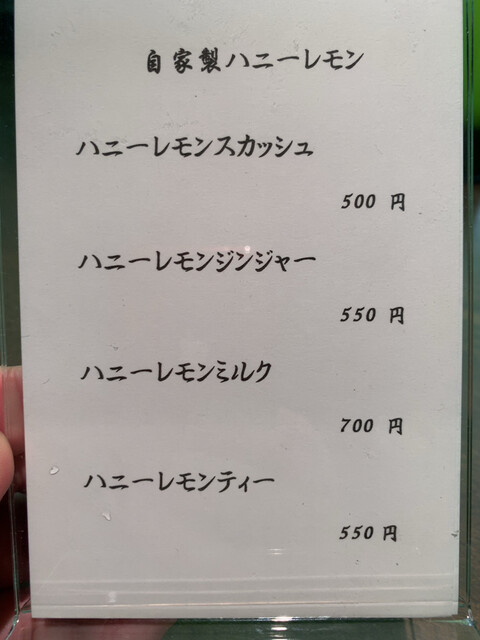 自家製ハニーレモン
ハニーレモンスカッシュ
500 円
ハニーレモンジンジャー
550 円
ハニーレモンミルク
700 円
ハニーレモンティー
550 円